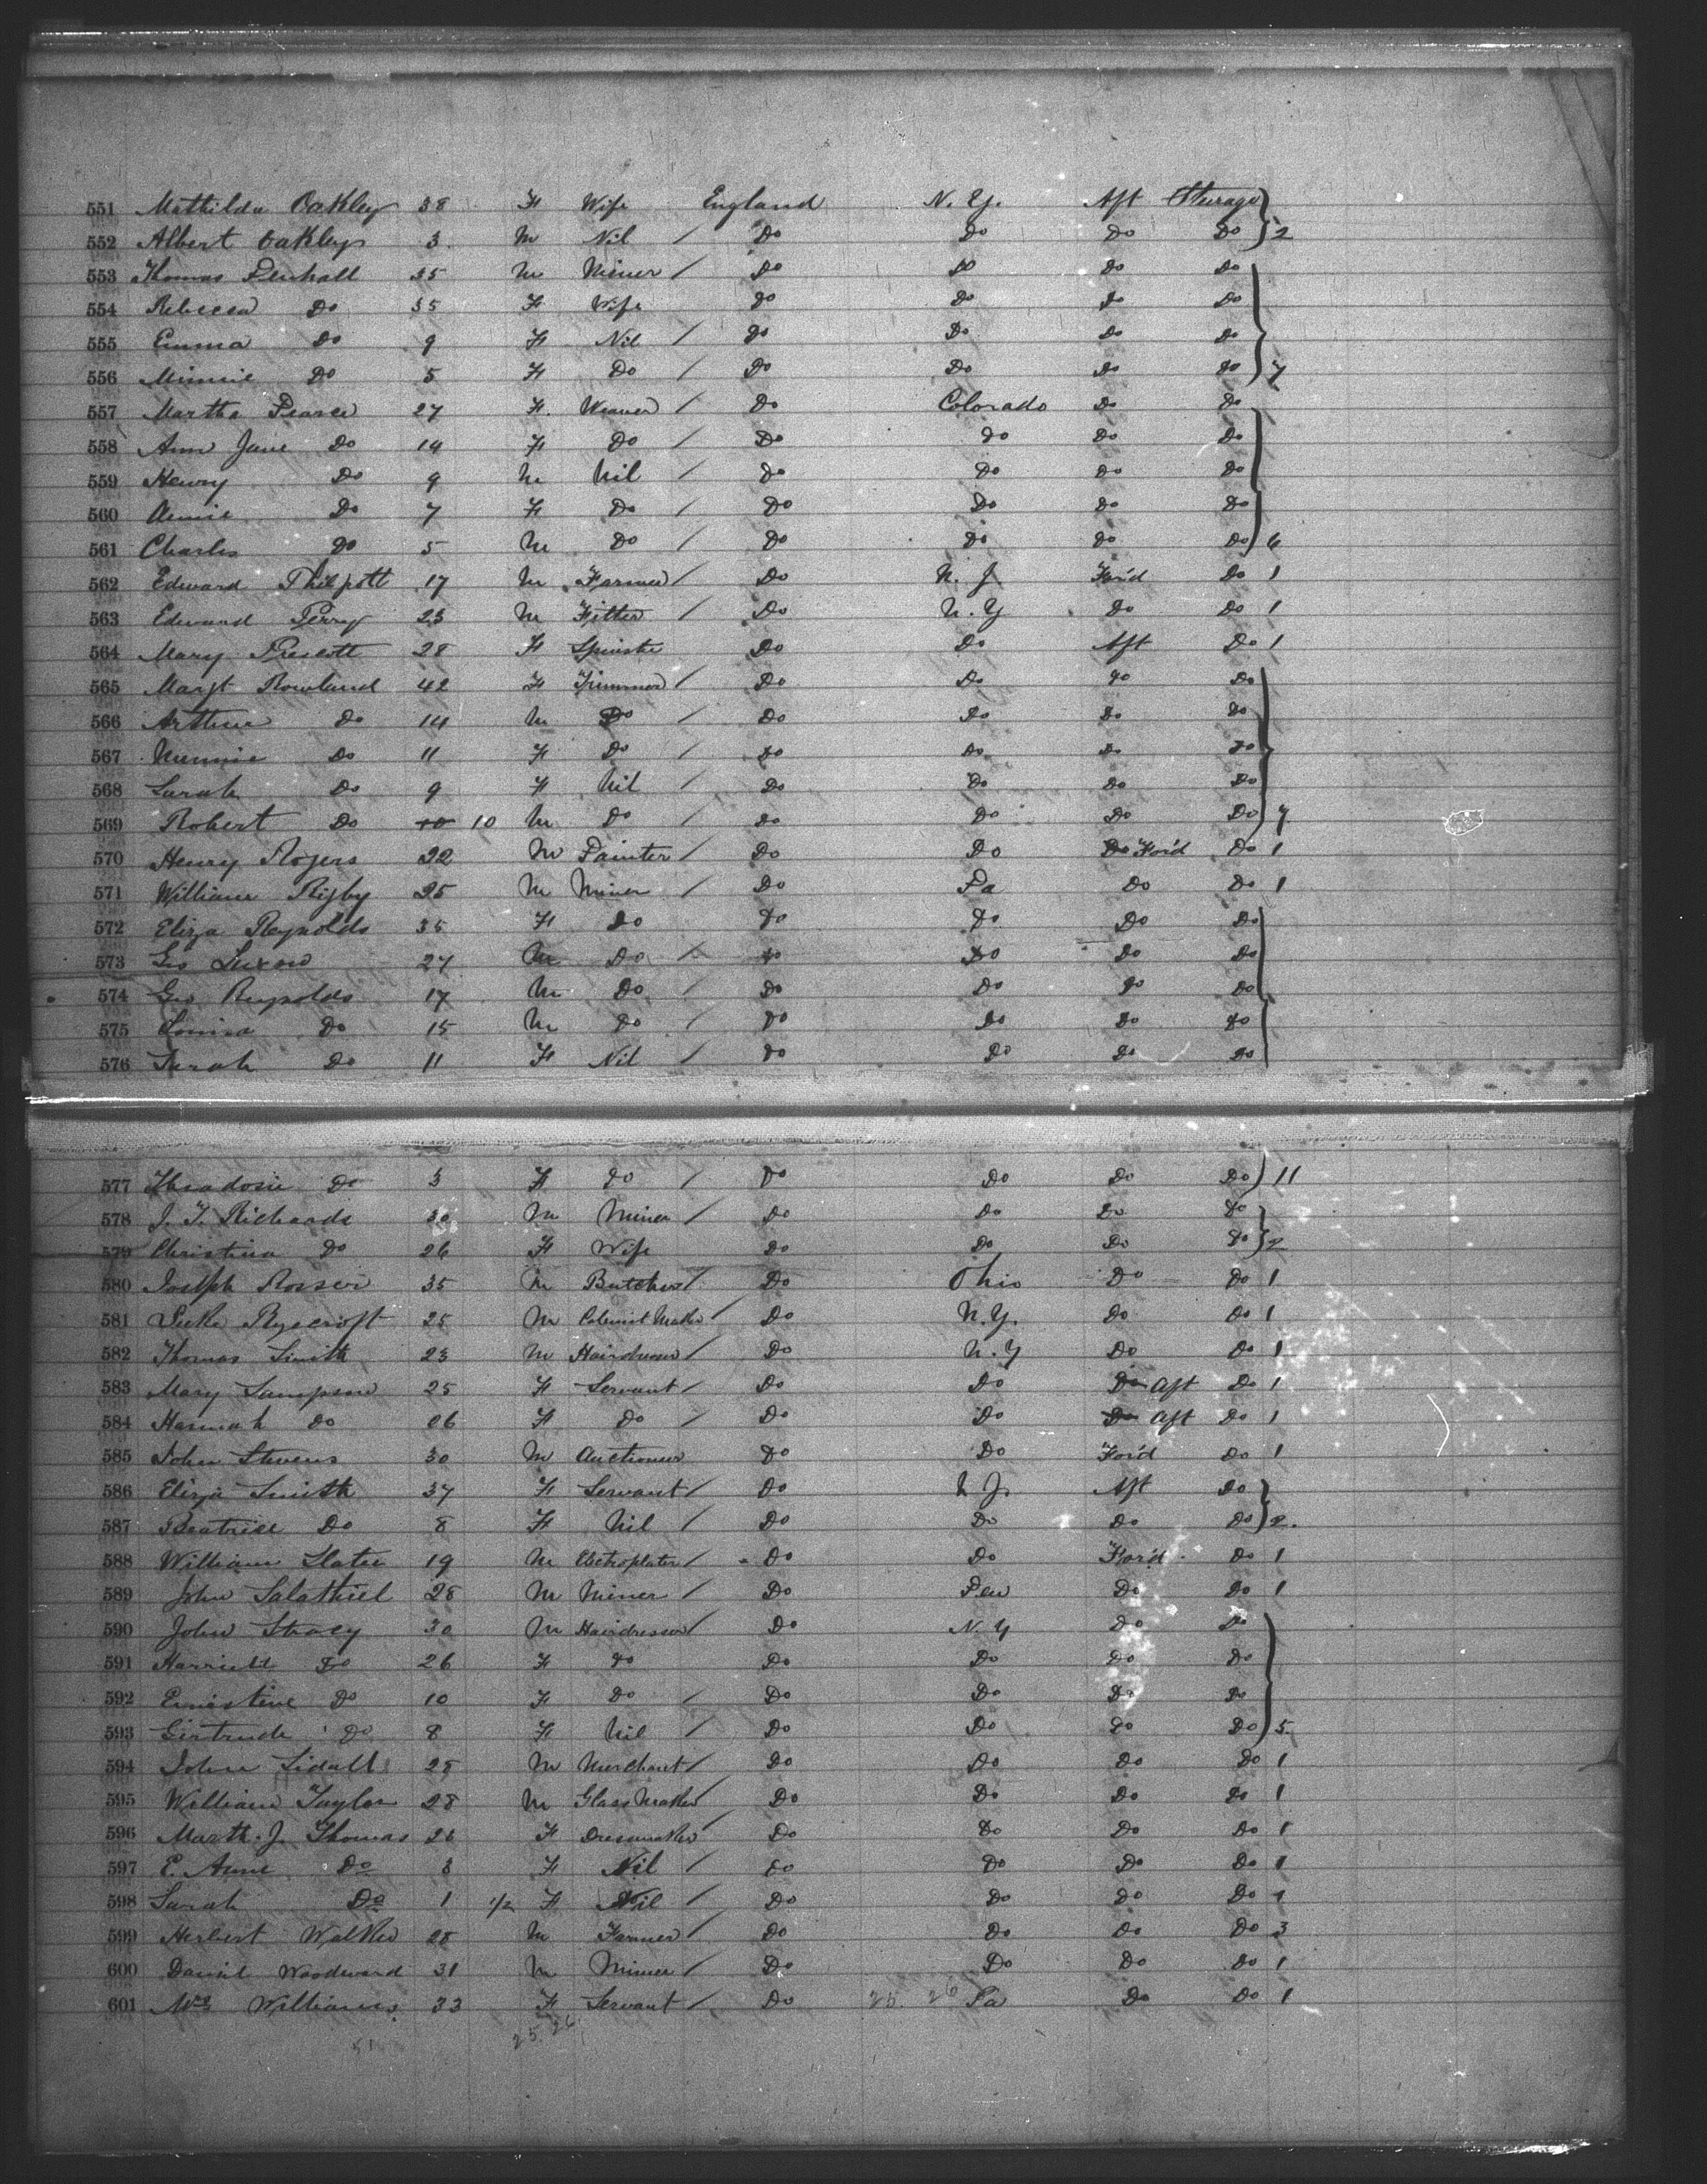 551 Mathilda Oakley 38 F Wife England N. Y. Aft Sterage
552 Albert Oakley 3 M Nil / Do Do Do Do 2
553 Thomas Penhall 35 M Miner / Do Do Do Do
554 Rebecca Do 35 F Wife Do Do Do Do
555 Emma Do 9 F Nil / Do Do Do Do
556 Minnie Do 5 F Do / Do Do Do Do 7
557 Martha Pearce 27 F. Weaver / Do Colorado Do Do
558 Ann Jane Do 14 F Do / Do Do Do Do
559 Henry Do 9 M Nil / Do Do Do Do
560 Annie Do 7 F Do / Do Do Do Do
561 Charles Do 5 M Do / Do Do Do Do 6
562 Edward Philpott 17 M Farmer / Do N. J. For'd Do 1
563 Edward Perry 23 M Fitter / Do N. Y Do Do 1
564 Mary Prescott 28 F Spinster Do Do Aft Do 1
565 Margt Rowland 42 F Trimmer / Do Do Do Do
566 Arthur Do 14 M Do / Do Do Do Do
567 Minnie Do 11 F Do / Do Do Do Do
568 Sarah Do 9 F Nil / Do Do Do Do
569 Robert Do 10 10 M Do / Do Do Do Do 7
570 Henry Rogers 22 M Painter / Do Do Do For'd Do 1
571 William Rigby 25 M Miner / Do Pa Do Do 1
572 Eliza Reynolds 35 F Do Do Do Do Do
573 Geo 27 M Do Do Do Do Do
574 Geo Reynolds 17 M Do / Do Do Do Do
575 Louisa Do 15 M Do / Do Do Do Do
576 Sarah Do 11 F Nil / Do Do Do Do
577 Theadosie Do 3 F Do / Do Do Do Do 11
578 J. T. Richards 30 M Miner / Do Do Do Do
579 Christina Do 26 F Wife Do Do Do Do 2
580 Joseph Rosser 35 M Butcher / Do Ohio Do Do 1
581 Ryecroft 25 M Cabinet Maker / Do N. Y. Do Do 1
582 Thomas Smith 23 M Hairdresser / Do N. Y Do Do 1
583 Mary Sampson 25 F Servant / Do Do Do Aft Do 1
584 Hannah Do 26 F Do / Do Do Do Aft Do 1
585 John Stevens 30 M Auctioneer Do Do For'd Do 1
586 Eliza Smith 37 F Servant / Do N J. Aft Do
587 Beatrice Do 8 F Nil / Do Do Do Do 2.
588 William Slater 19 M Electroplater / Do Do For'd Do 1
589 John Salathiel 28 M Miner / Do Pen Do Do 1
590 John Stracy 30 M Hairdresser / Do N. Y Do Do
591 Harriett Do 26 F Do Do Do Do Do
592 Ernestine Do 10 F Do / Do Do Do Do
593 Gertrude Do 8 F Nil / Do Do Do Do 5.
594 John Sidall 25 M Merchant / Do Do Do Do 1
595 William Taylor 28 M Glass Maker Do Do Do Do 1
596 Marth. J. Thomas 26 F Dressmaker Do Do Do Do 1
597 E. Anne Do 3 F Nil / Do Do Do Do 1
598 Sarah Do 1 1/2 F Nil / Do Do Do Do 1
599 Herbert Walker 28 M Farmer / Do Do Do Do 3
600 Daniel Woodward 31 M Miner / Do Do Do Do 1
601 Mrs Williams 33 F Servant / Do 25. 26 Pa Do Do 1
51 25.26